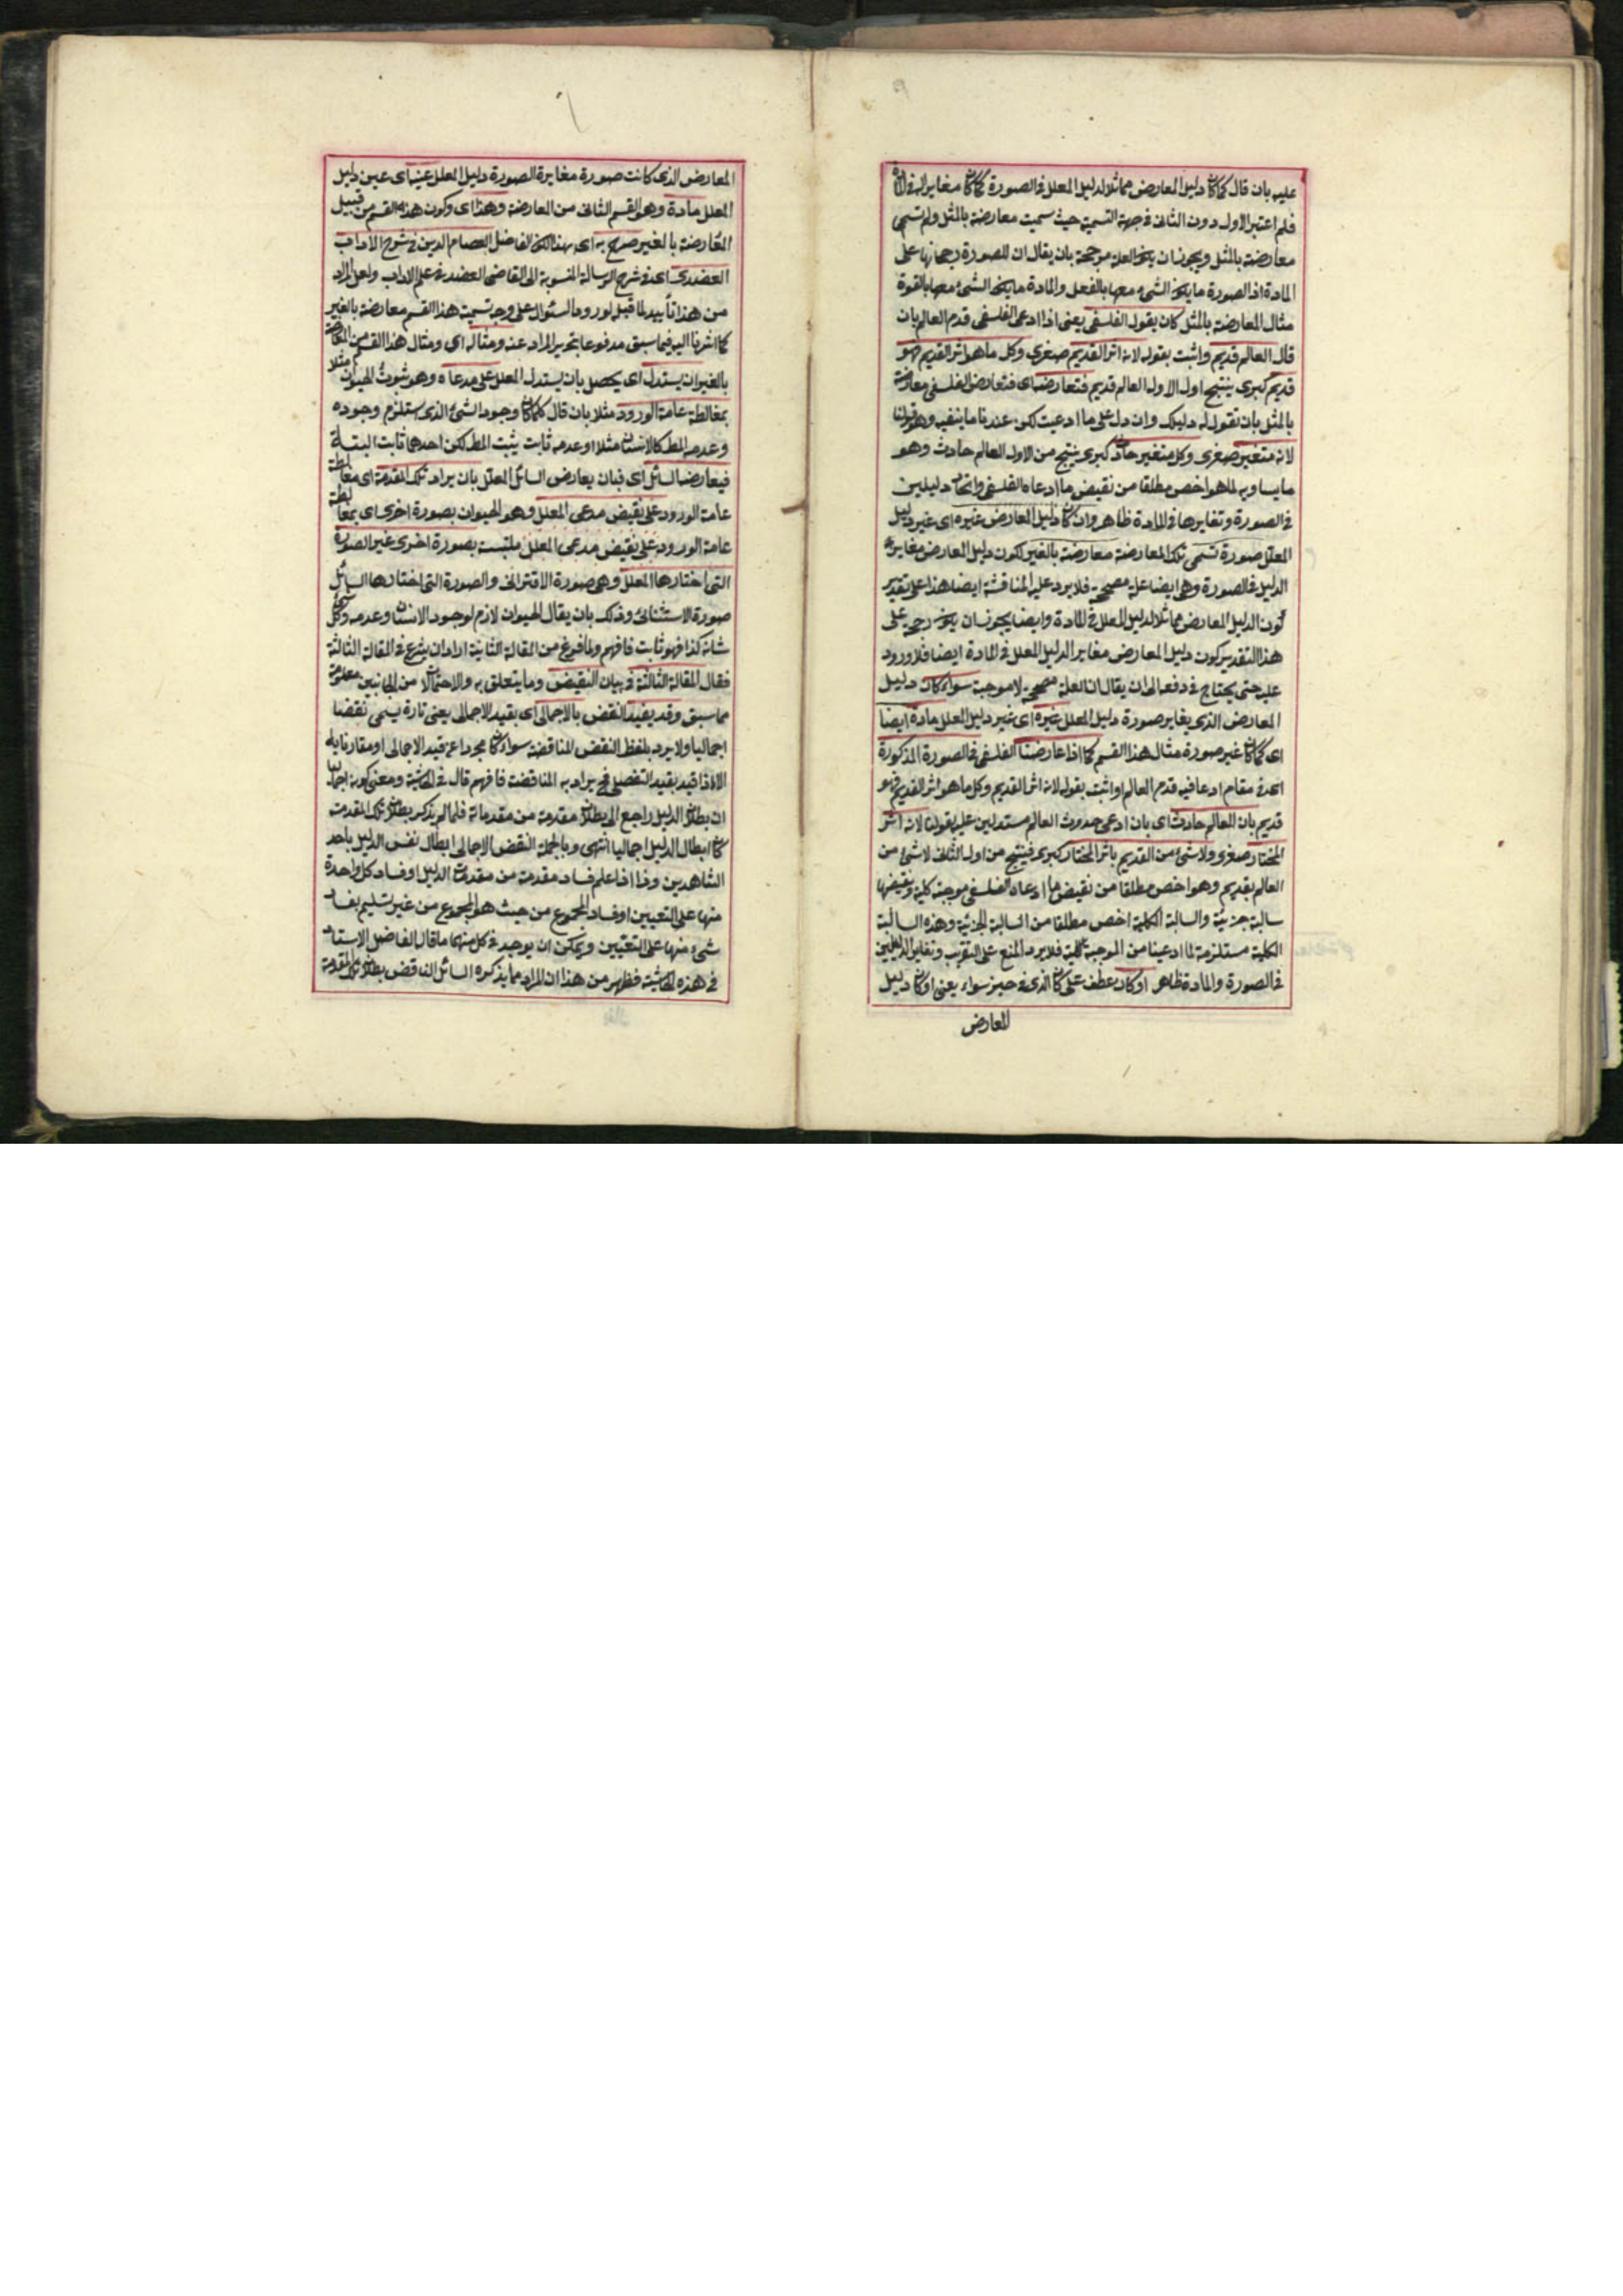 عليه بان قال كما كان دليل المعارض مماثلا لدليل المعلل فى الصورة كما كان مغايرا له فى المادة
فلم اعتبر الاول دون الثانى فى جهة التسمية حيث سميت معارضة بالمثل ولم تسمى
معارضة بالمثل ويجوز ان يكون العلة مرجحة بان يقال ان للصورة رجحانها على
المادة اذ الصورة ما يكون الشئ معها بالفعل والمادة ما يكون الشئ معها بالقوة
مثال المعارضة بالمثل كان يقول الفلسفى يعنى اذا ادعى الفلسفى قدم العالم بان
قال العالم قديم واثبت بقوله لانه اثر القديم صغرى وكل ما هو اثر القديم فهو
قديم كبرى ينتج اول الاول العالم قديم فتعارضه اى فتعارض الفلسفى معارضة
بالمثل بان نقول له دليلك وان دل على ما ادعيت لكن عندنا ما ينفيه وهو قولنا
لانه متغير صغرى وكل متغير حادث كبرى ينتج من الاول العالم حادث وهو
ما يساويه لما هو اخص مطلقا من نقيض ما ادعاه الفلسفى واتحاد دليلين
فى الصورة وتغايرها فى المادة ظاهر وان كان دليل المعارض غيره اى غير دليل
المعلل صورة تسمى تلك المعارضة معارضة بالغير لكون دليل المعارض مغايرة
الدليل فى الصورة وهى ايضا علة مصححة فلا يرد عليه المناقشة ايضا هذا على تقدير
كون الدليل المعارض مماثلا لدليل المعلل فى المادة وايضا يجوز ان يكون على
هذا التقدير كون دليل المعارض مغاير الدليل المعلل فى المادة ايضا فلا ورود
عليه حتى يحتاج فى دفعه الى ان يقال ان العلة مصححة لا موجبة سواء كان دليل
المعارض الذى يغاير صورة دليل المعلل غيره اى غير دليل المعلل مادة ايضا
اى كما كان غير صورة مثال هذا القسم كما اذا عارضنا الفلسفى فى الصورة المذكورة
اى فى مقام ادعا فيه قدم العالم واثبت بقوله لانه اثر القديم وكل ما هو اثر القديم فهو
قديم بان العالم حادث اى بان ادعى حدوث العالم مستدلين عليه بقولنا لانه اثر
المختار صغرى ولا شئ من القديم باثر المختار كبرى فينتج من اول الثانى لا شئ من
العالم بقديم وهو اخص مطلقا من نقيض ما ادعاه الفلسفى موجبة كلية ونقيضها
سالبة جزئية والسالبة الكلية اخص مطلقا من السالبة الجزئية وهذه السالبة
الكلية مستلزمة لما ادعينا من الموجبة كلية فلا يرد المنع على التقريب وتغاير الدليلين
فى الصورة والمادة ظاهر او كان عطف على كان الذى فى حيز سواء يعنى او كان دليل
المعارض
المعارض الذى كانت صورة مغايرة الصورة دليل المعلل عينه اى عين دليل
المعلل مادة وهو القسم الثانى من المعارضة وهذا اى وكون هذا القسم من قبيل
المعارضة بالغير صرح به اى بهذا الكون الفاضل العصام الدين فى شرح الاداب
العضدى اى فى شرح الرسالة المنسوبة الى القاضى العضد فى علم الاداب ولعل المراد
من هذا تأييد لما قبل لورود السئوال على وجه تسمية هذا القسم معارضة بالغير
كما اشرنا اليه فيما سبق مدفوعا بتحرير المراد عنه ومثاله اى ومثال هذا القسم من المعارضة
بالغير ان يستدل اى يحصل بان يستدل المعلل على مدعاه وهو ثبوت الحيوان مثلا
بمغالطة عامة الورود مثلا بان قال كلما كان وجود الشئ الذى يستلزم وجوده
وعدمه المط كالانسان مثلا او عدمه ثابت يثبت المط لكن احدهما ثابت البتة
فيعارضه السائل اى فبان يعارض السائل المعلل بان يراد تلك المقدمة اى مغالطة
عامة الورود على نقيض مدعى المعلل وهو الحيوان بصورة اخرى اى بمغالطة
عامة الورود على نقيض مدعى المعلل ملتبسة بصورة اخرى غير الصورة
التى اختارها المعلل وهى صورة الاقترانى والصورة التى اختارها السائل
صورة الاستثنائى وذلك بان يقال الحيوان لازم لوجود الانسان وعدمه وكل شئ
شانه كذا فهو ثابت فافهم ولما فرغ من المقالة الثانية اراد ان يشرع فى المقالة الثالثة
فقال المقالة الثالثة فى بيان النقيض وما يتعلق به والاحتمالات من الجانبين معلومة
مما سبق وقد يقيد النقض بالاجمالى اى بقيد الاجمالى يعنى تارة يسمى نقضا
اجماليا ولا يرد بلفظ النقض المناقضة سواء كان مجردا عن قيد الاجمالى او مقارنا به
الا اذا قيد بقيد التفصيلى فح يراد به المناقضة فافهم قال فى الحاشية ومعنى كونه اجماليا
ان بطلان الدليل راجع الى بطلان مقدمة من مقدماته فلما لم يذكر بطلان تلك المقدمة
كان ابطال الدليل اجماليا انتهى وبالجملة النقض الاجمالى ابطال نفس الدليل باحد
الشاهدين وذا اذا علم فساد مقدمة من مقدمات الدليل او فساد كل واحدة
منها على التعيين او فساد المجموع من حيث هو المجموع من غير تسليم بفساد
شئ منها على التعيين ويمكن ان يوجد فى كل منهما ما قال الفاضل الاستاد
فى هذه الحاشية فظهر من هذا ان المراد مما يذكره السائل الناقض بطلان تلك المقدمة